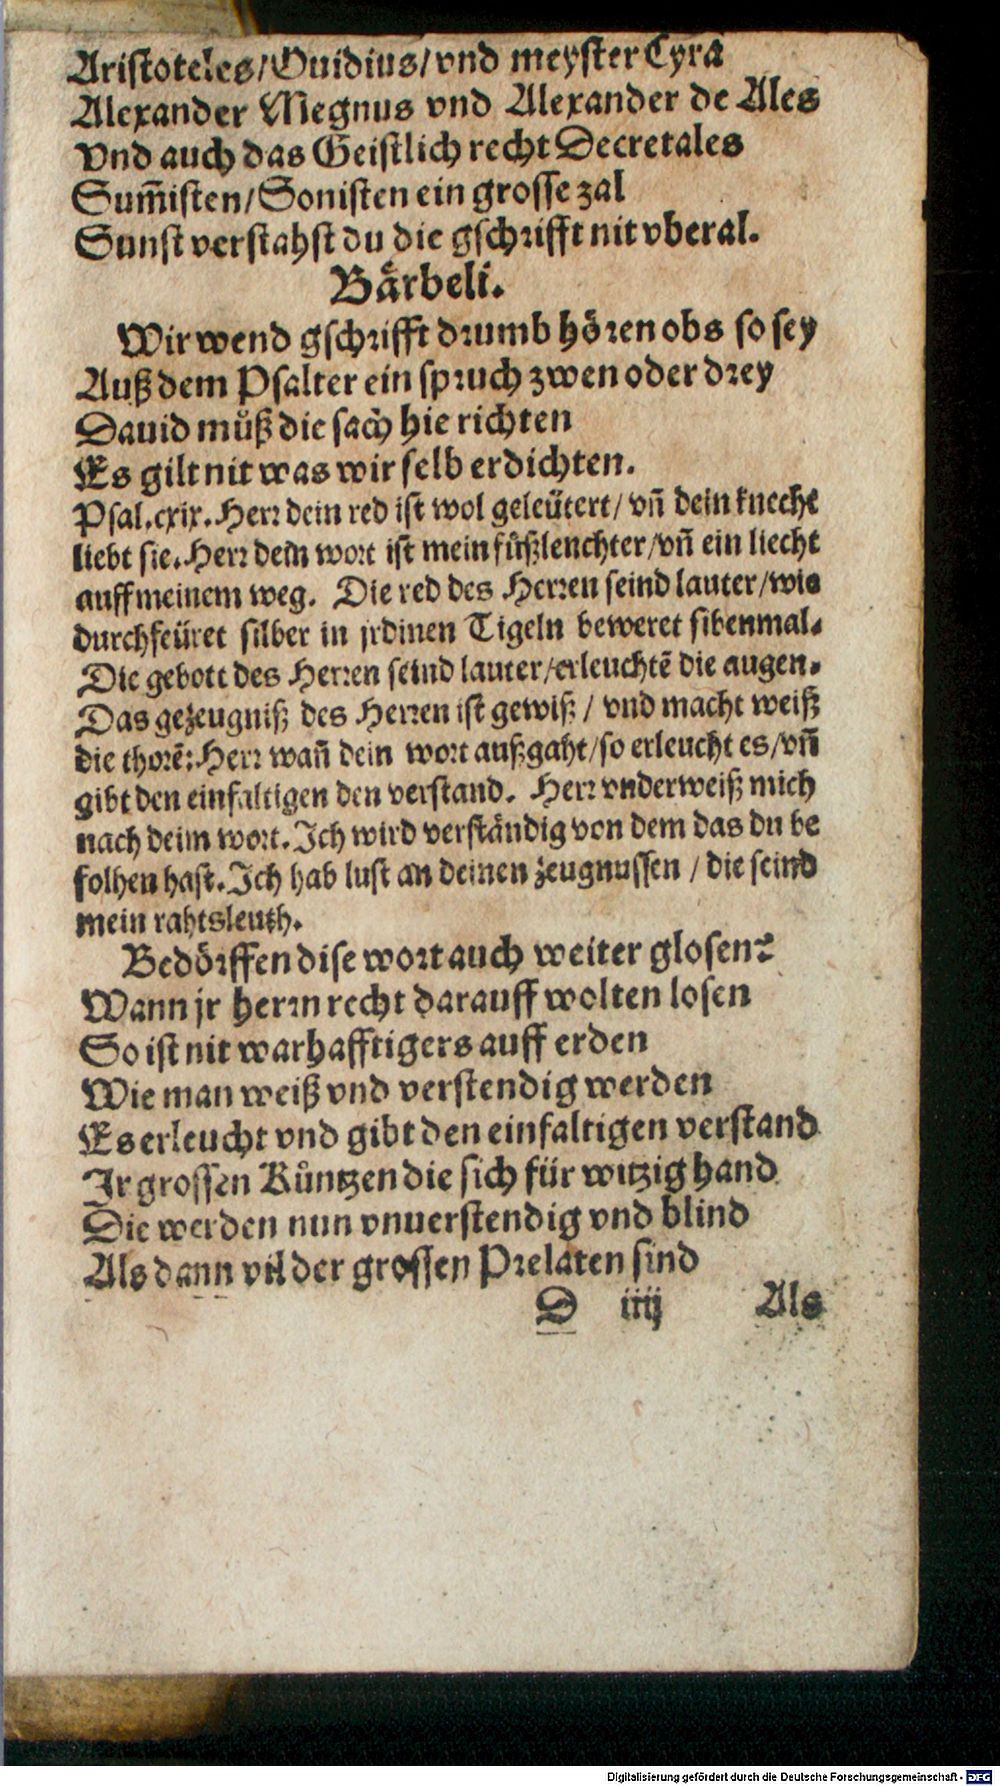 Aristoteles/Ouidius/vnd meyster Lyra
Alexander Megnus vnd Alexander de Ales
Vnd auch das Geistlich recht Decretales
Sum̄isten/Sonisten ein grosse zal
Sunst verstahst du die gschrifft nit vberal.
Baͤrbeli.
Wir wend gschrifft drumb hoͤren obs so sey
Auß dem Psalter ein spruch zwen oder drey
Dauid muͤß die sach hie richten
Es gilt nit was wir selb erdichten.
Psal.cxix. Herr dein red ist wol geleütert/ vn̄ dein knecht
liebt sie. Herr dein wort ist mein fuͤßleuchter/vn̄ ein liecht
auff meinem weg. Die red des Herren seind lauter/wie
durchfeüret silber in jrdinen Tigeln beweret sibenmal.
Die gebott des Herren seind lauter/erleuchtē die augen.
Das gezeugniß des Herren ist gewiß / vnd macht weiß
die thorē: Herr wan̄ dein wort außgaht/so erleucht es/vn̄
gibt den einfaltigen den verstand. Herr vnderweiß mich
nach deim wort. Ich wird verständig von dem das du be
folhen hast. Ich hab lust an deinen zeugnussen / die seind
mein rahtsleuth.
Bedoͤrffen dise wort auch weiter glosen?
Wann jr herrn recht darauff wolten losen
So ist nit warhafftigers auff erden
Wie man weiß vnd verstendig werden
Es erleucht vnd gibt den einfaltigen verstand
Ir grossen Kuͤntzen die sich für witzig hand
Die werden nun vnuerstendig vnd blind
Als dann vil der grossen Prelaten sind
D iiij Als
Digitalisierung gefördert durch die Deutsche Forschungsgemeinschaft - DFG